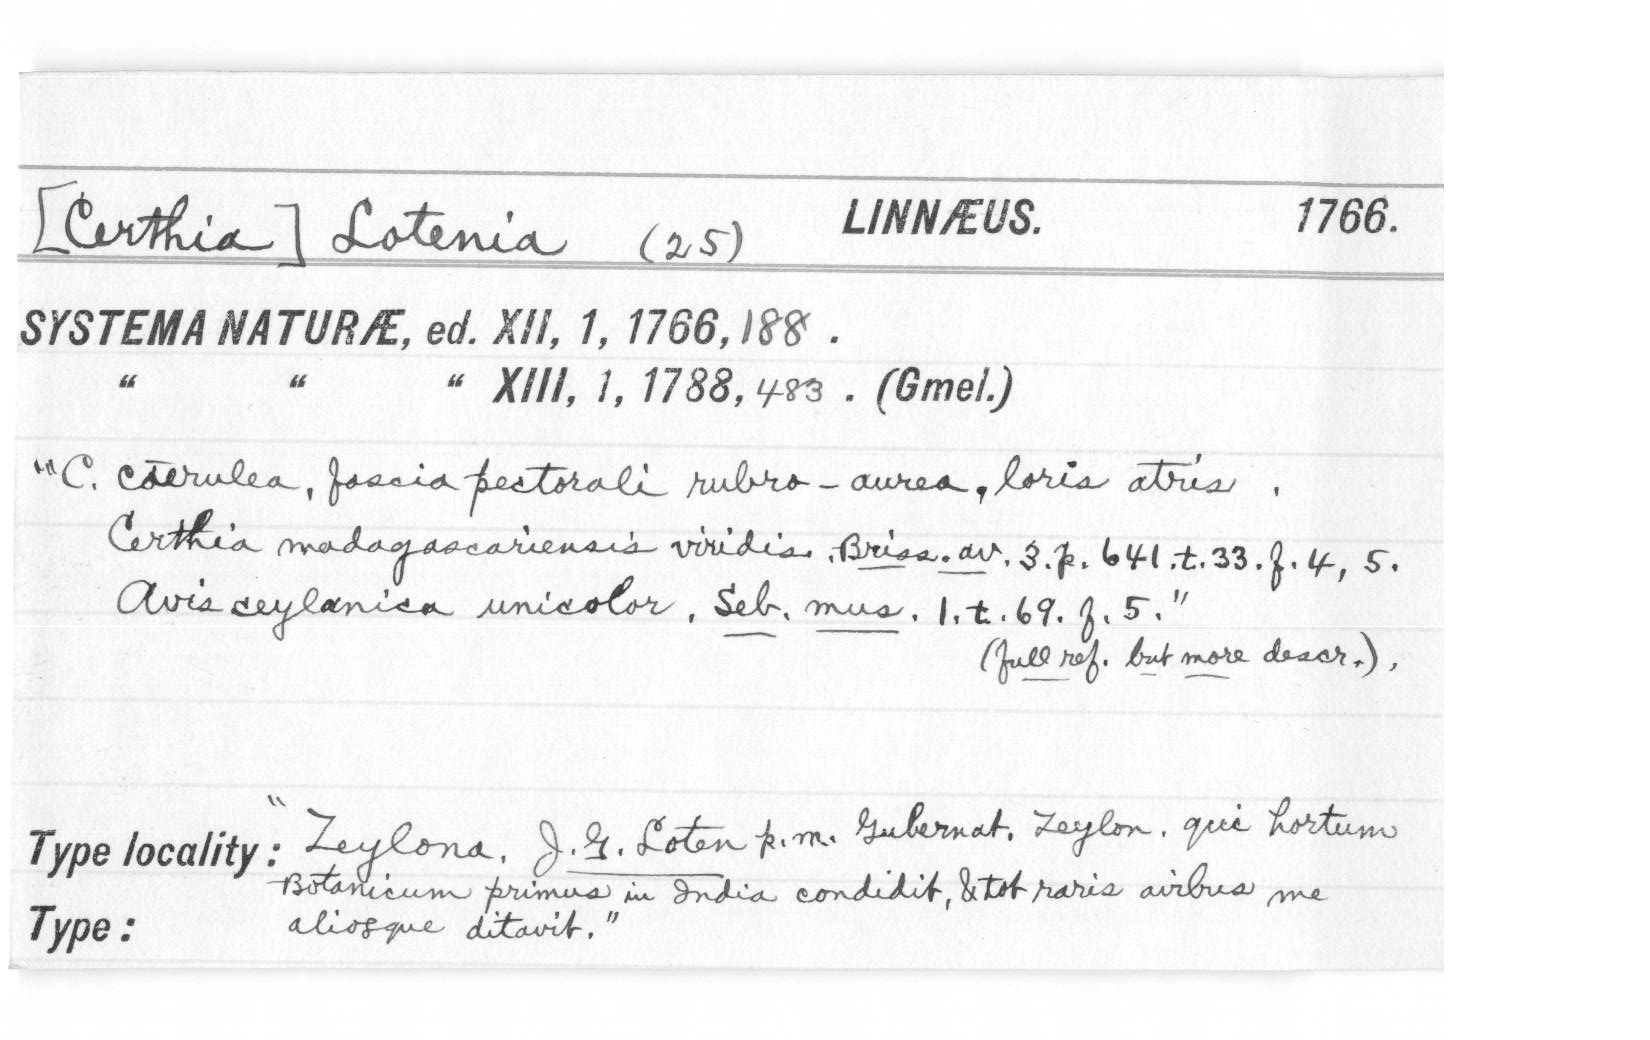 [Certhia] Lotenia (25) LINNÆUS. 1766.
SYSTEMA NATURÆ, ed. XII, 1, 1766, 188 .
“ “ “ XIII, 1, 1788, 483 . (Gmel.)
"C. coerulea, fascia pectorali rubro-aurea, loris atris .
Certhia madagascariensis viridis. Briss. av. 3. p. 641. t. 33. f. 4, 5.
Avis ceylanica unicolor. Seb. mus. 1. t. 69. f. 5."
(full ref. but more descr.),
Type locality: "Zeylona. J. G. Loten p. m. Gubernat. Zeylon. qui hortum
Botanicum primus in India condidit, & tot raris avibus me
Type: aliosque ditavit."